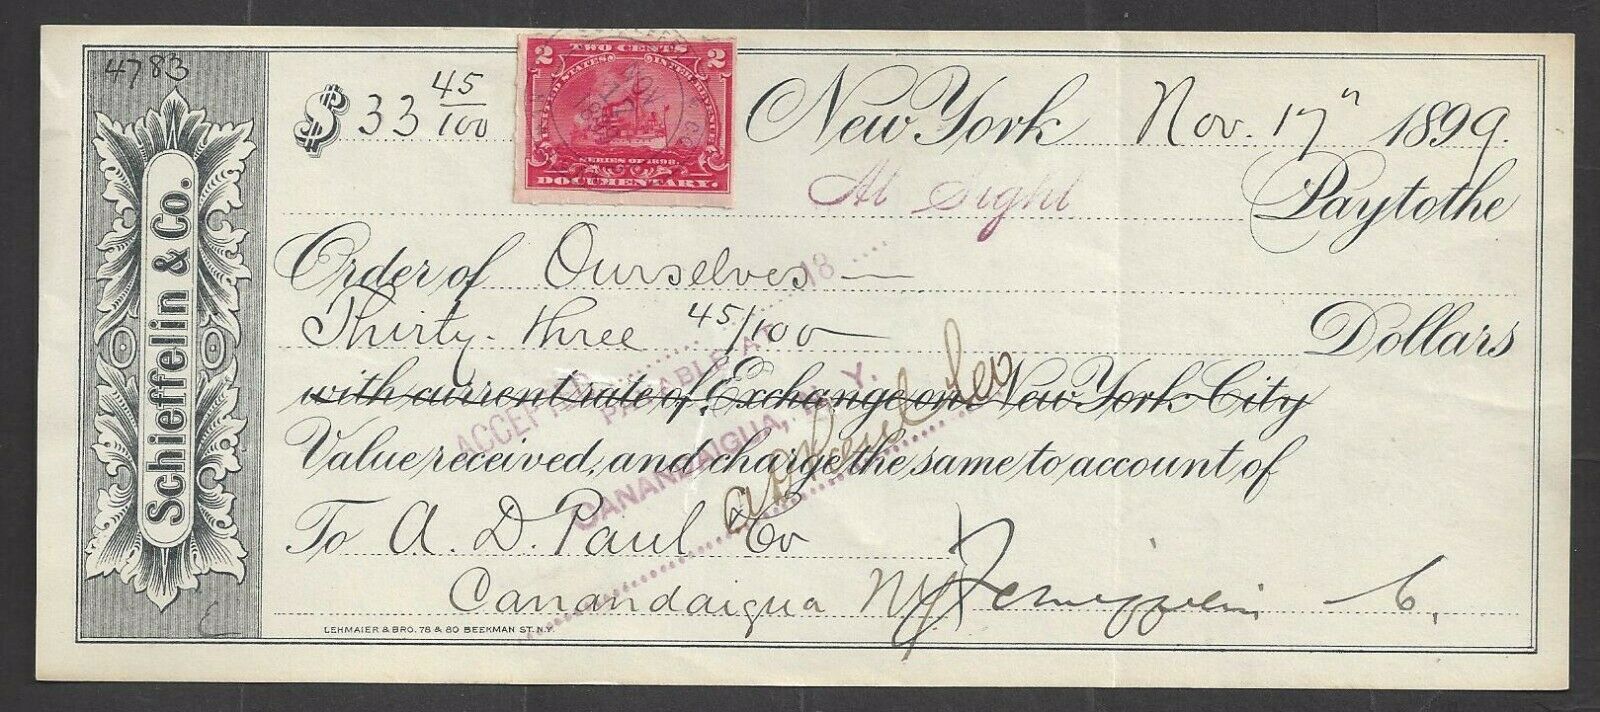 4783
Schieffelin & Co.
$ 33 45/100
2 TWO CENTS 2
UNITED STATES INTER. REVENUE
SERIES OF 1898.
DOCUMENTARY.
New York Nov. 17" 1899.
At Sight Pay to the
Order of Ourselves
Thirty-three 45/100 Dollars
with current rate of Exchange on New York City
Value received, and charge the same to account of
To A. D. Paul & Co
Canandaigua NY
Schieffelin & Co.
ACCEPTED 18
PAYABLE AT
CANANDAIGUA, N. Y.
LEHMAIER & BRO. 78 & 80 BEEKMAN ST. N.Y.